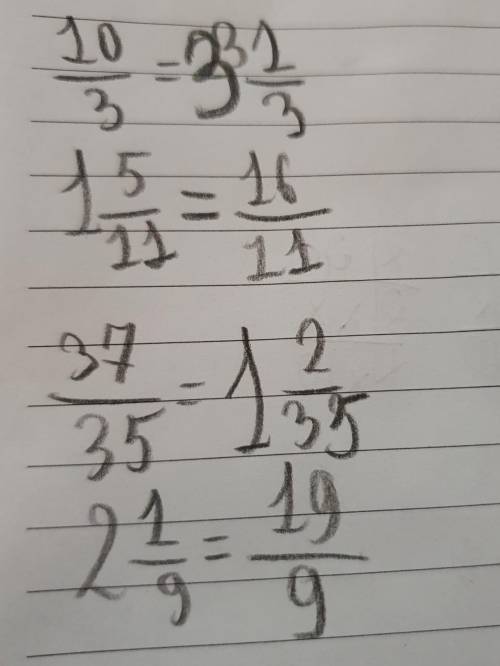 10/3 = 3 1/3
1 5/11 = 16/11
37/35 = 1 2/35
2 1/9 = 19/9